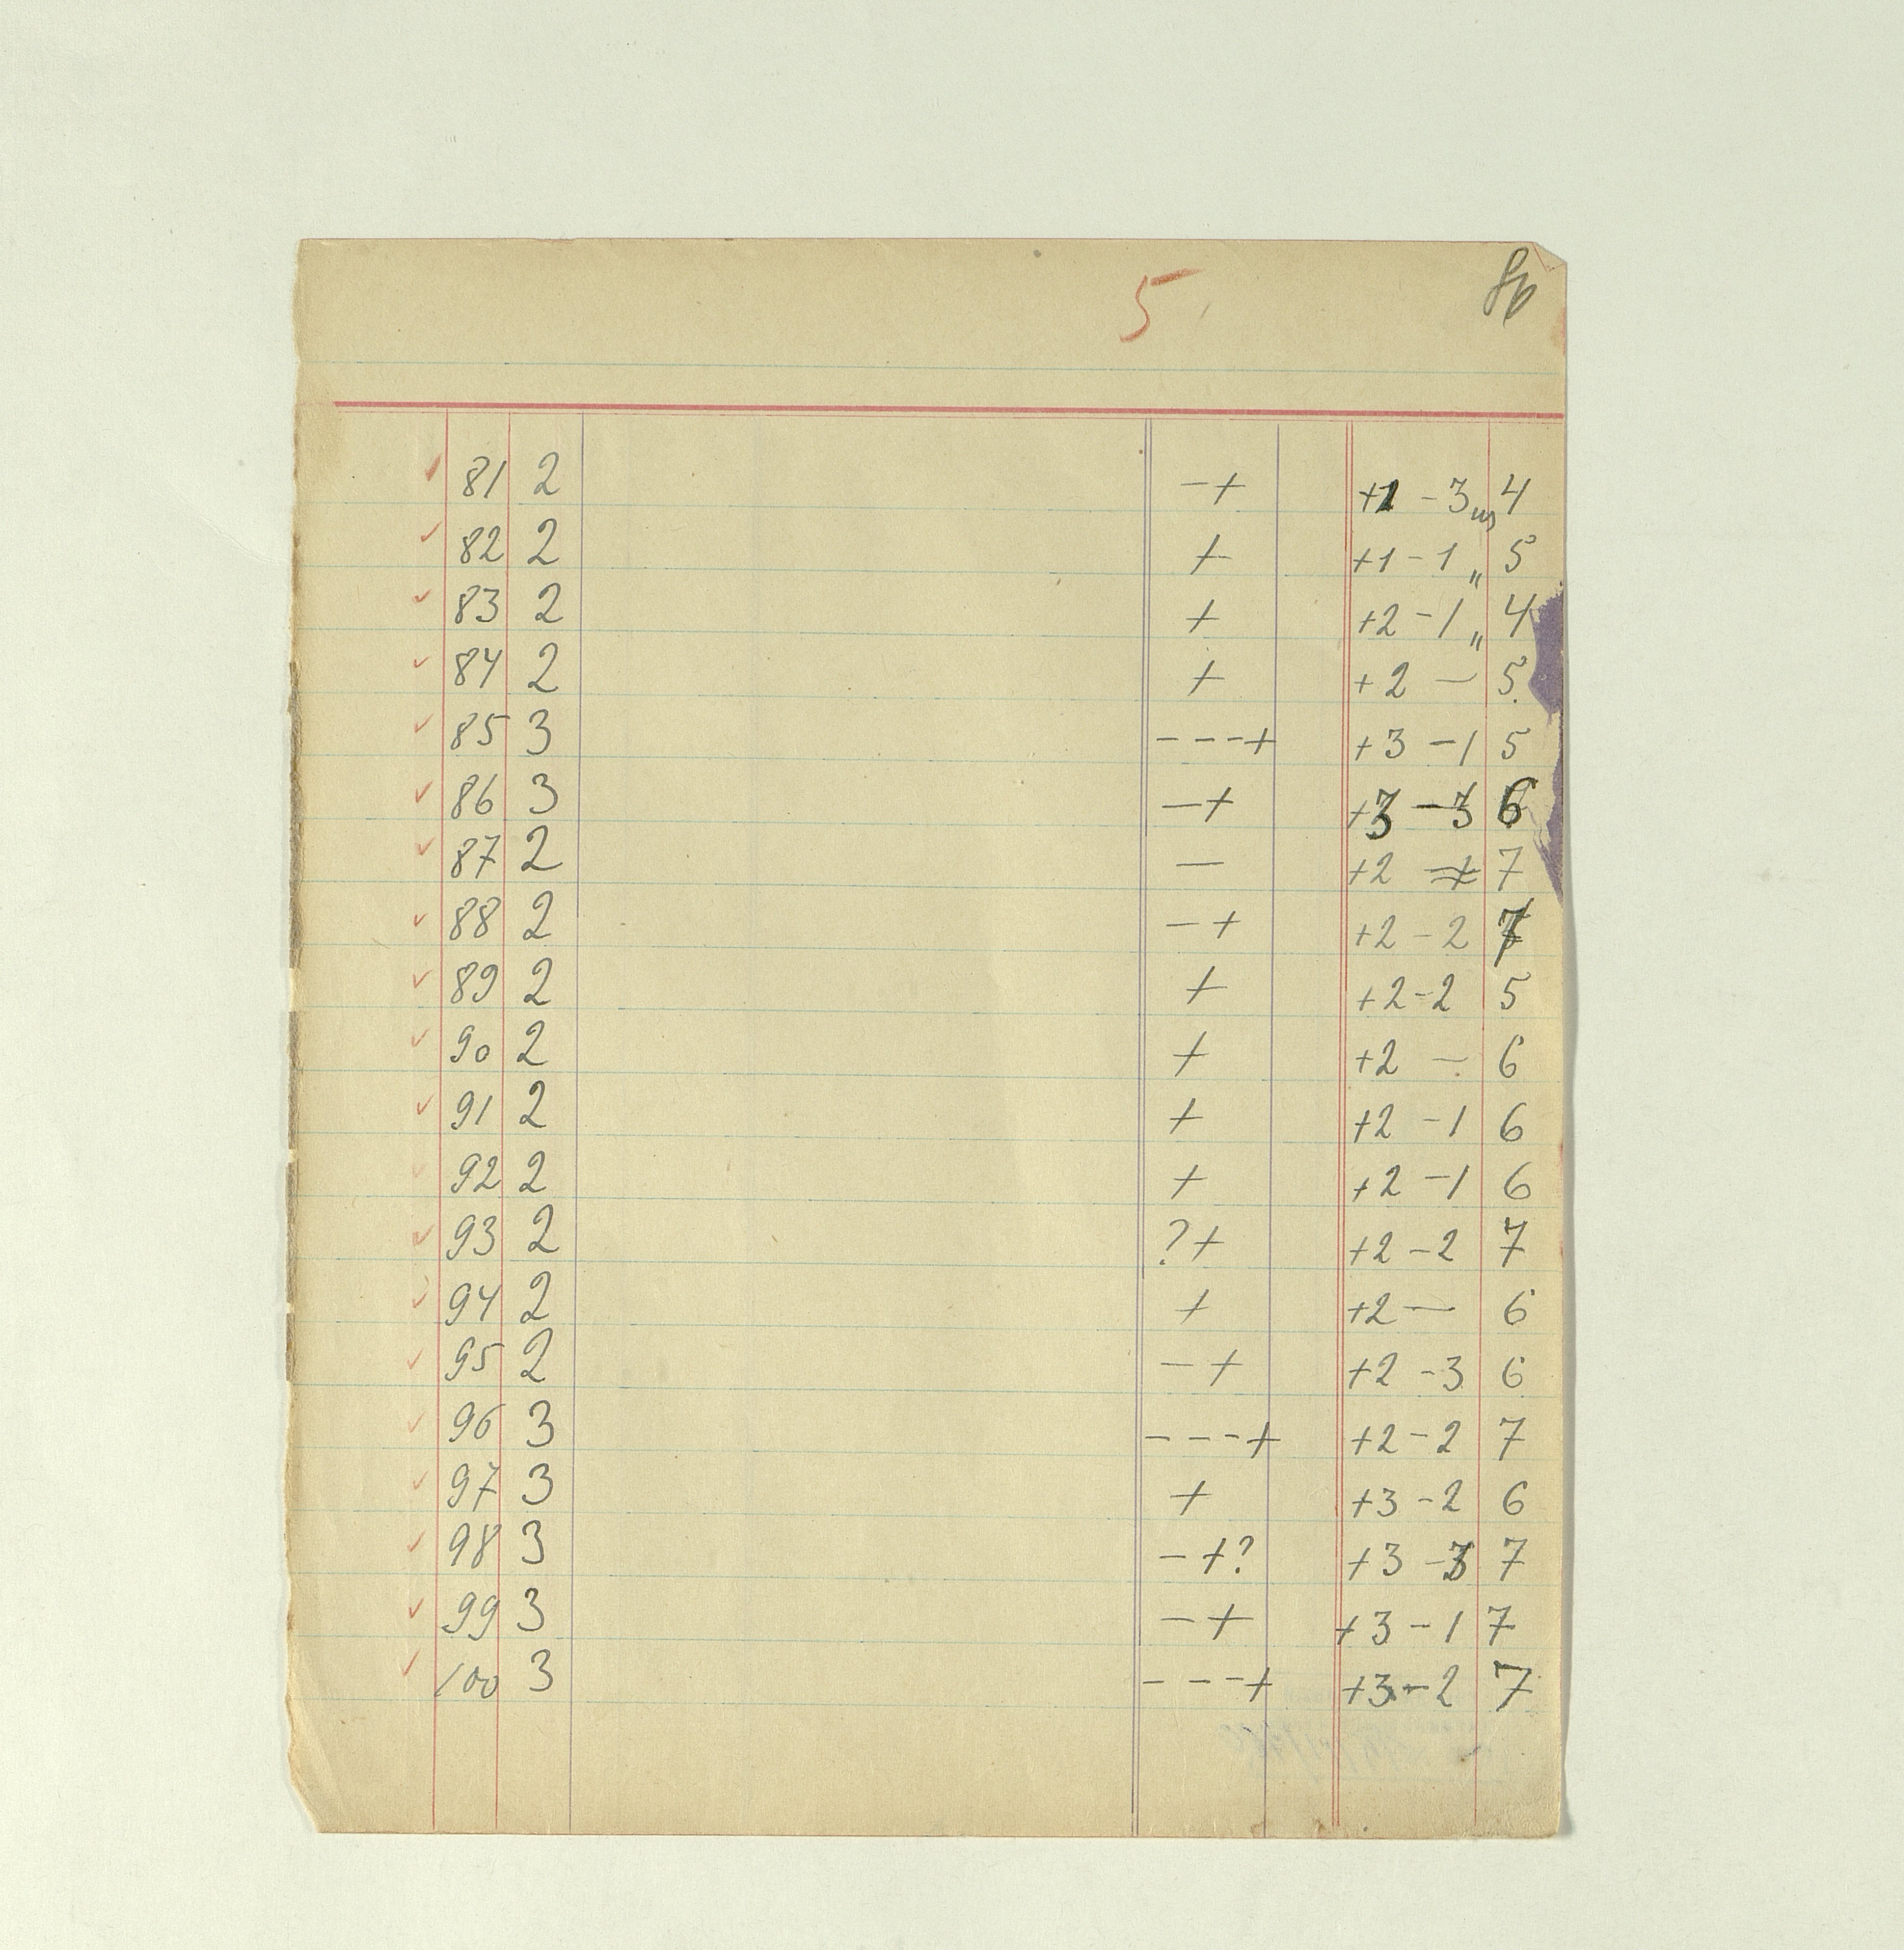 5
86
✓ 81 2 — + +1 – 3 us 4
✓ 82 2 + +1 – 1 „ 5
✓ 83 2 + +2 – 1 „ 4
✓ 84 2 + +2 — 5
✓ 85 3 – – – + +3 – 1 5
✓ 86 3 – + +3 – 3 6
✓ 87 2 — +2 7
✓ 88 2 – + +2 – 2 7
✓ 89 2 + +2 – 2 5
✓ 90 2 + +2 — 6
✓ 91 2 + +2 – 1 6
✓ 92 2 + +2 – 1 6
✓ 93 2 ? + +2 – 2 7
✓ 94 2 + +2 — 6
✓ 95 2 – + +2 – 3 6
✓ 96 3 – – – + +2 – 2 7
✓ 97 3 + +3 – 2 6
✓ 98 3 – +? +3 – 3 7
✓ 99 3 – + +3 – 1 7
✓ 100 3 – – – + +3 – 2 7